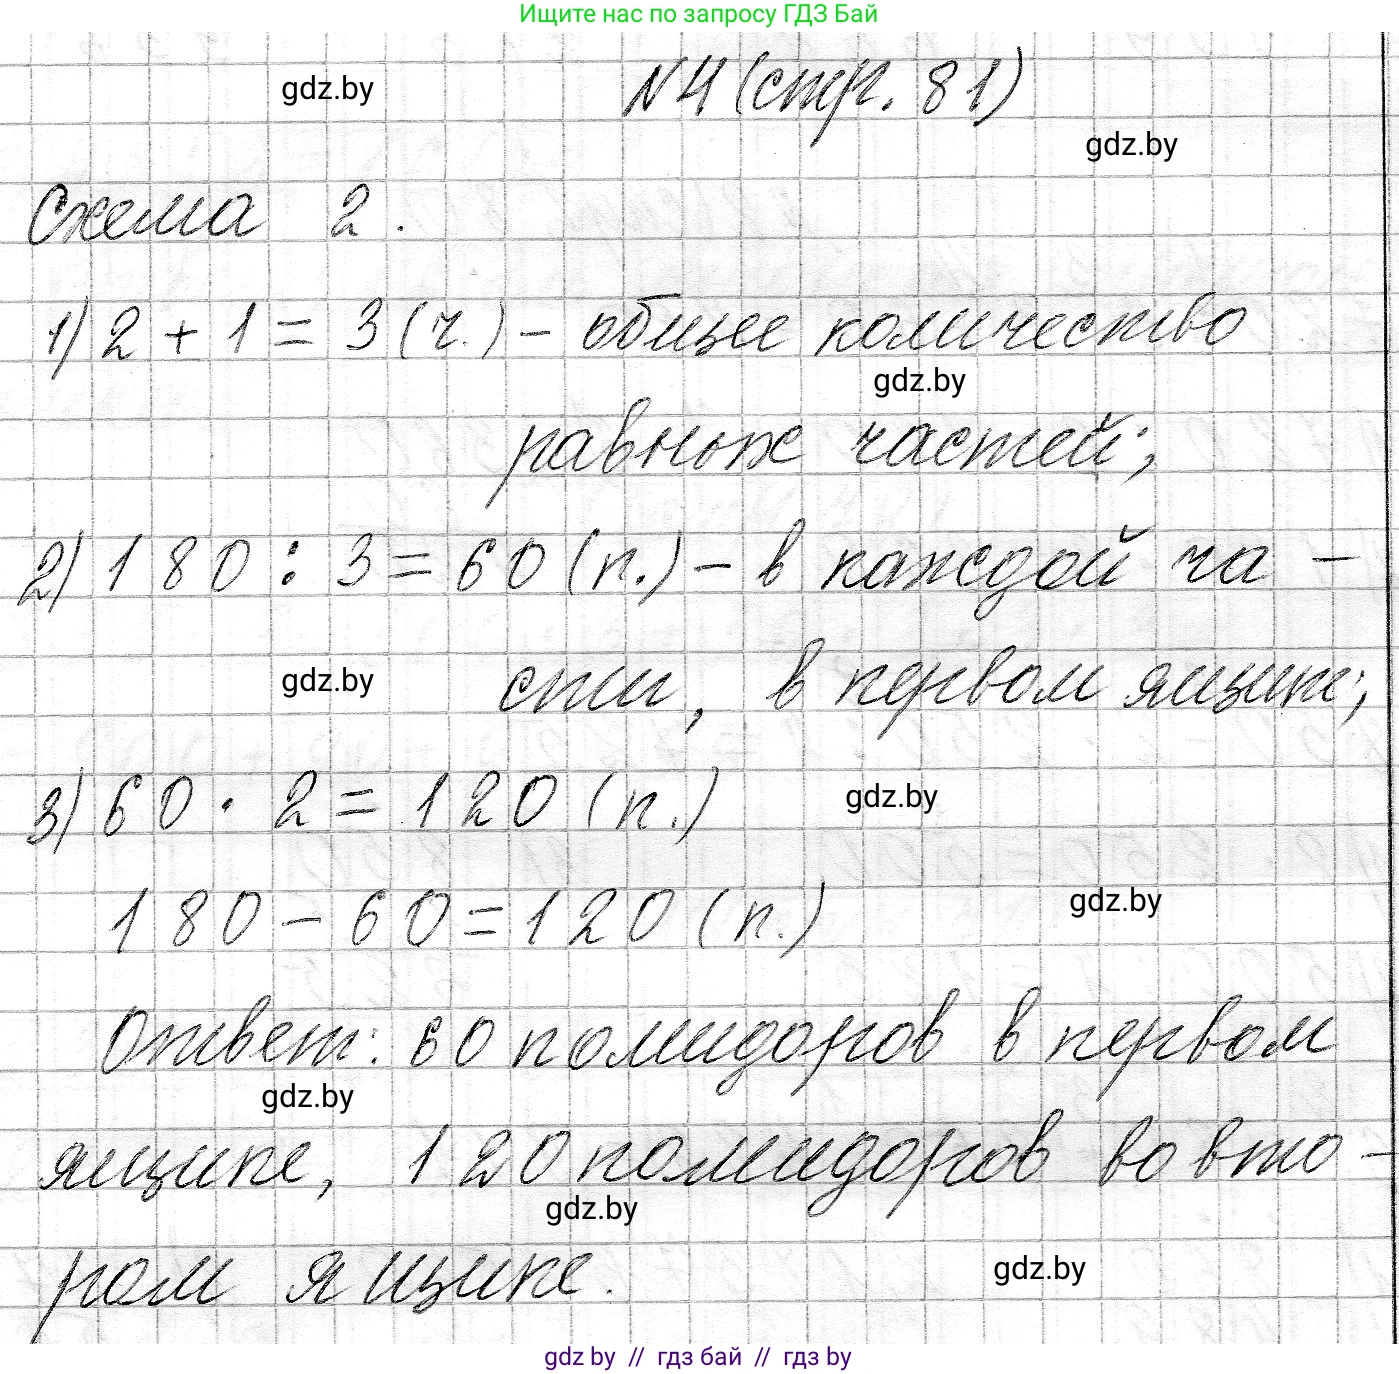 Ищите нас по запросу ГДЗ Бай
gdz.by
№4 (стр. 81)
gdz.by
Схема 2.
1) 2 + 1 = 3 (ч.) - общее количество
gdz.by
равных частей;
2) 180 : 3 = 60 (п.) - в каждой ча -
gdz.by
сти, в первом ящике;
3) 60 · 2 = 120 (п.)
gdz.by
180 - 60 = 120 (п.)
gdz.by
Ответ: 60 помидоров в первом
gdz.by
ящике, 120 помидоров во вто -
gdz.by
ром ящике.
gdz.by
gdz by // гдз бай // гдз by